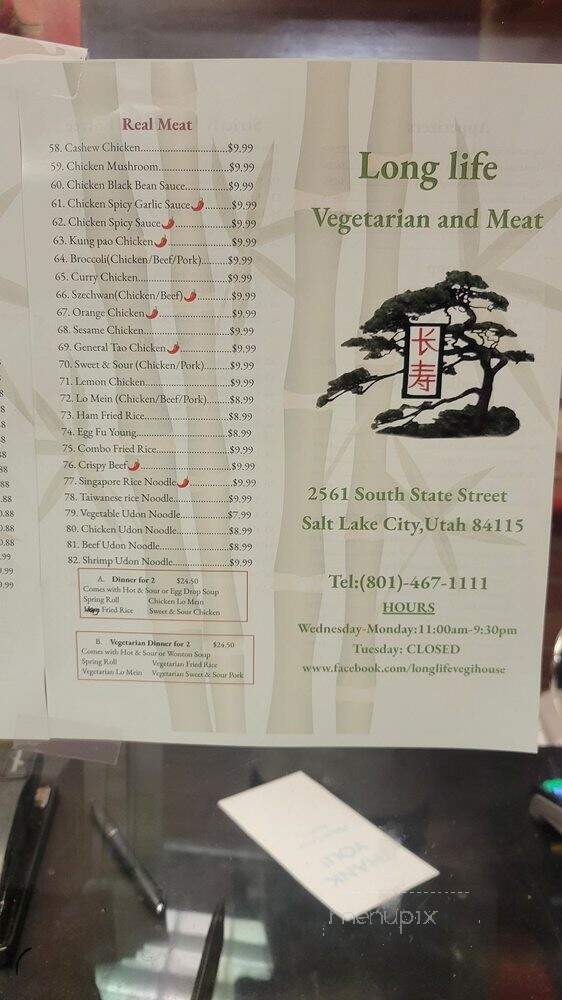 Real Meat
58. Cashew Chicken..............................$9.99
59. Chicken Mushroom........................$9.99
60. Chicken Black Bean Sauce..............$9.99
61. Chicken Spicy Garlic Sauce........$9.99
62. Chicken Spicy Sauce.................$9.99
63. Kung pao Chicken....................$9.99
64. Broccoli(Chicken/Beef/Pork)........$9.99
65. Curry Chicken..............................$9.99
66. Szechwan(Chicken/Beef)..........$9.99
67. Orange Chicken........................$9.99
68. Sesame Chicken............................$9.99
69. General Tao Chicken................$9.99
70. Sweet & Sour (Chicken/Pork)........$9.99
71. Lemon Chicken............................$9.99
72. Lo Mein (Chicken/Beef/Pork).......$8.99
73. Ham Fried Rice............................$8.99
74. Egg Fu Young...............................$8.99
75. Combo Fried Rice.........................$9.99
76. Crispy Beef..............................$9.99
77. Singapore Rice Noodle..............$9.99
78. Taiwanese rice Noodle..................$9.99
79. Vegetable Udon Noodle................$7.99
80. Chicken Udon Noodle..................$8.99
81. Beef Udon Noodle........................$8.99
82. Shrimp Udon Noodle....................$9.99
A. Dinner for 2 $24.50
Comes with Hot & Sour or Egg Drop Soup
Spring Roll Chicken Lo Mein
Fried Rice Sweet & Sour Chicken
B. Vegetarian Dinner for 2 $24.50
Comes with Hot & Sour or Wonton Soup
Spring Roll Vegetarian Fried Rice
Vegetarian Lo Mein Vegetarian Sweet & Sour Pork
Long life
Vegetarian and Meat
长
寿
2561 South State Street
Salt Lake City,Utah 84115
Tel:(801)-467-1111
HOURS
Wednesday-Monday:11:00am-9:30pm
Tuesday: CLOSED
www.facebook.com/longlifevegihouse
menupix